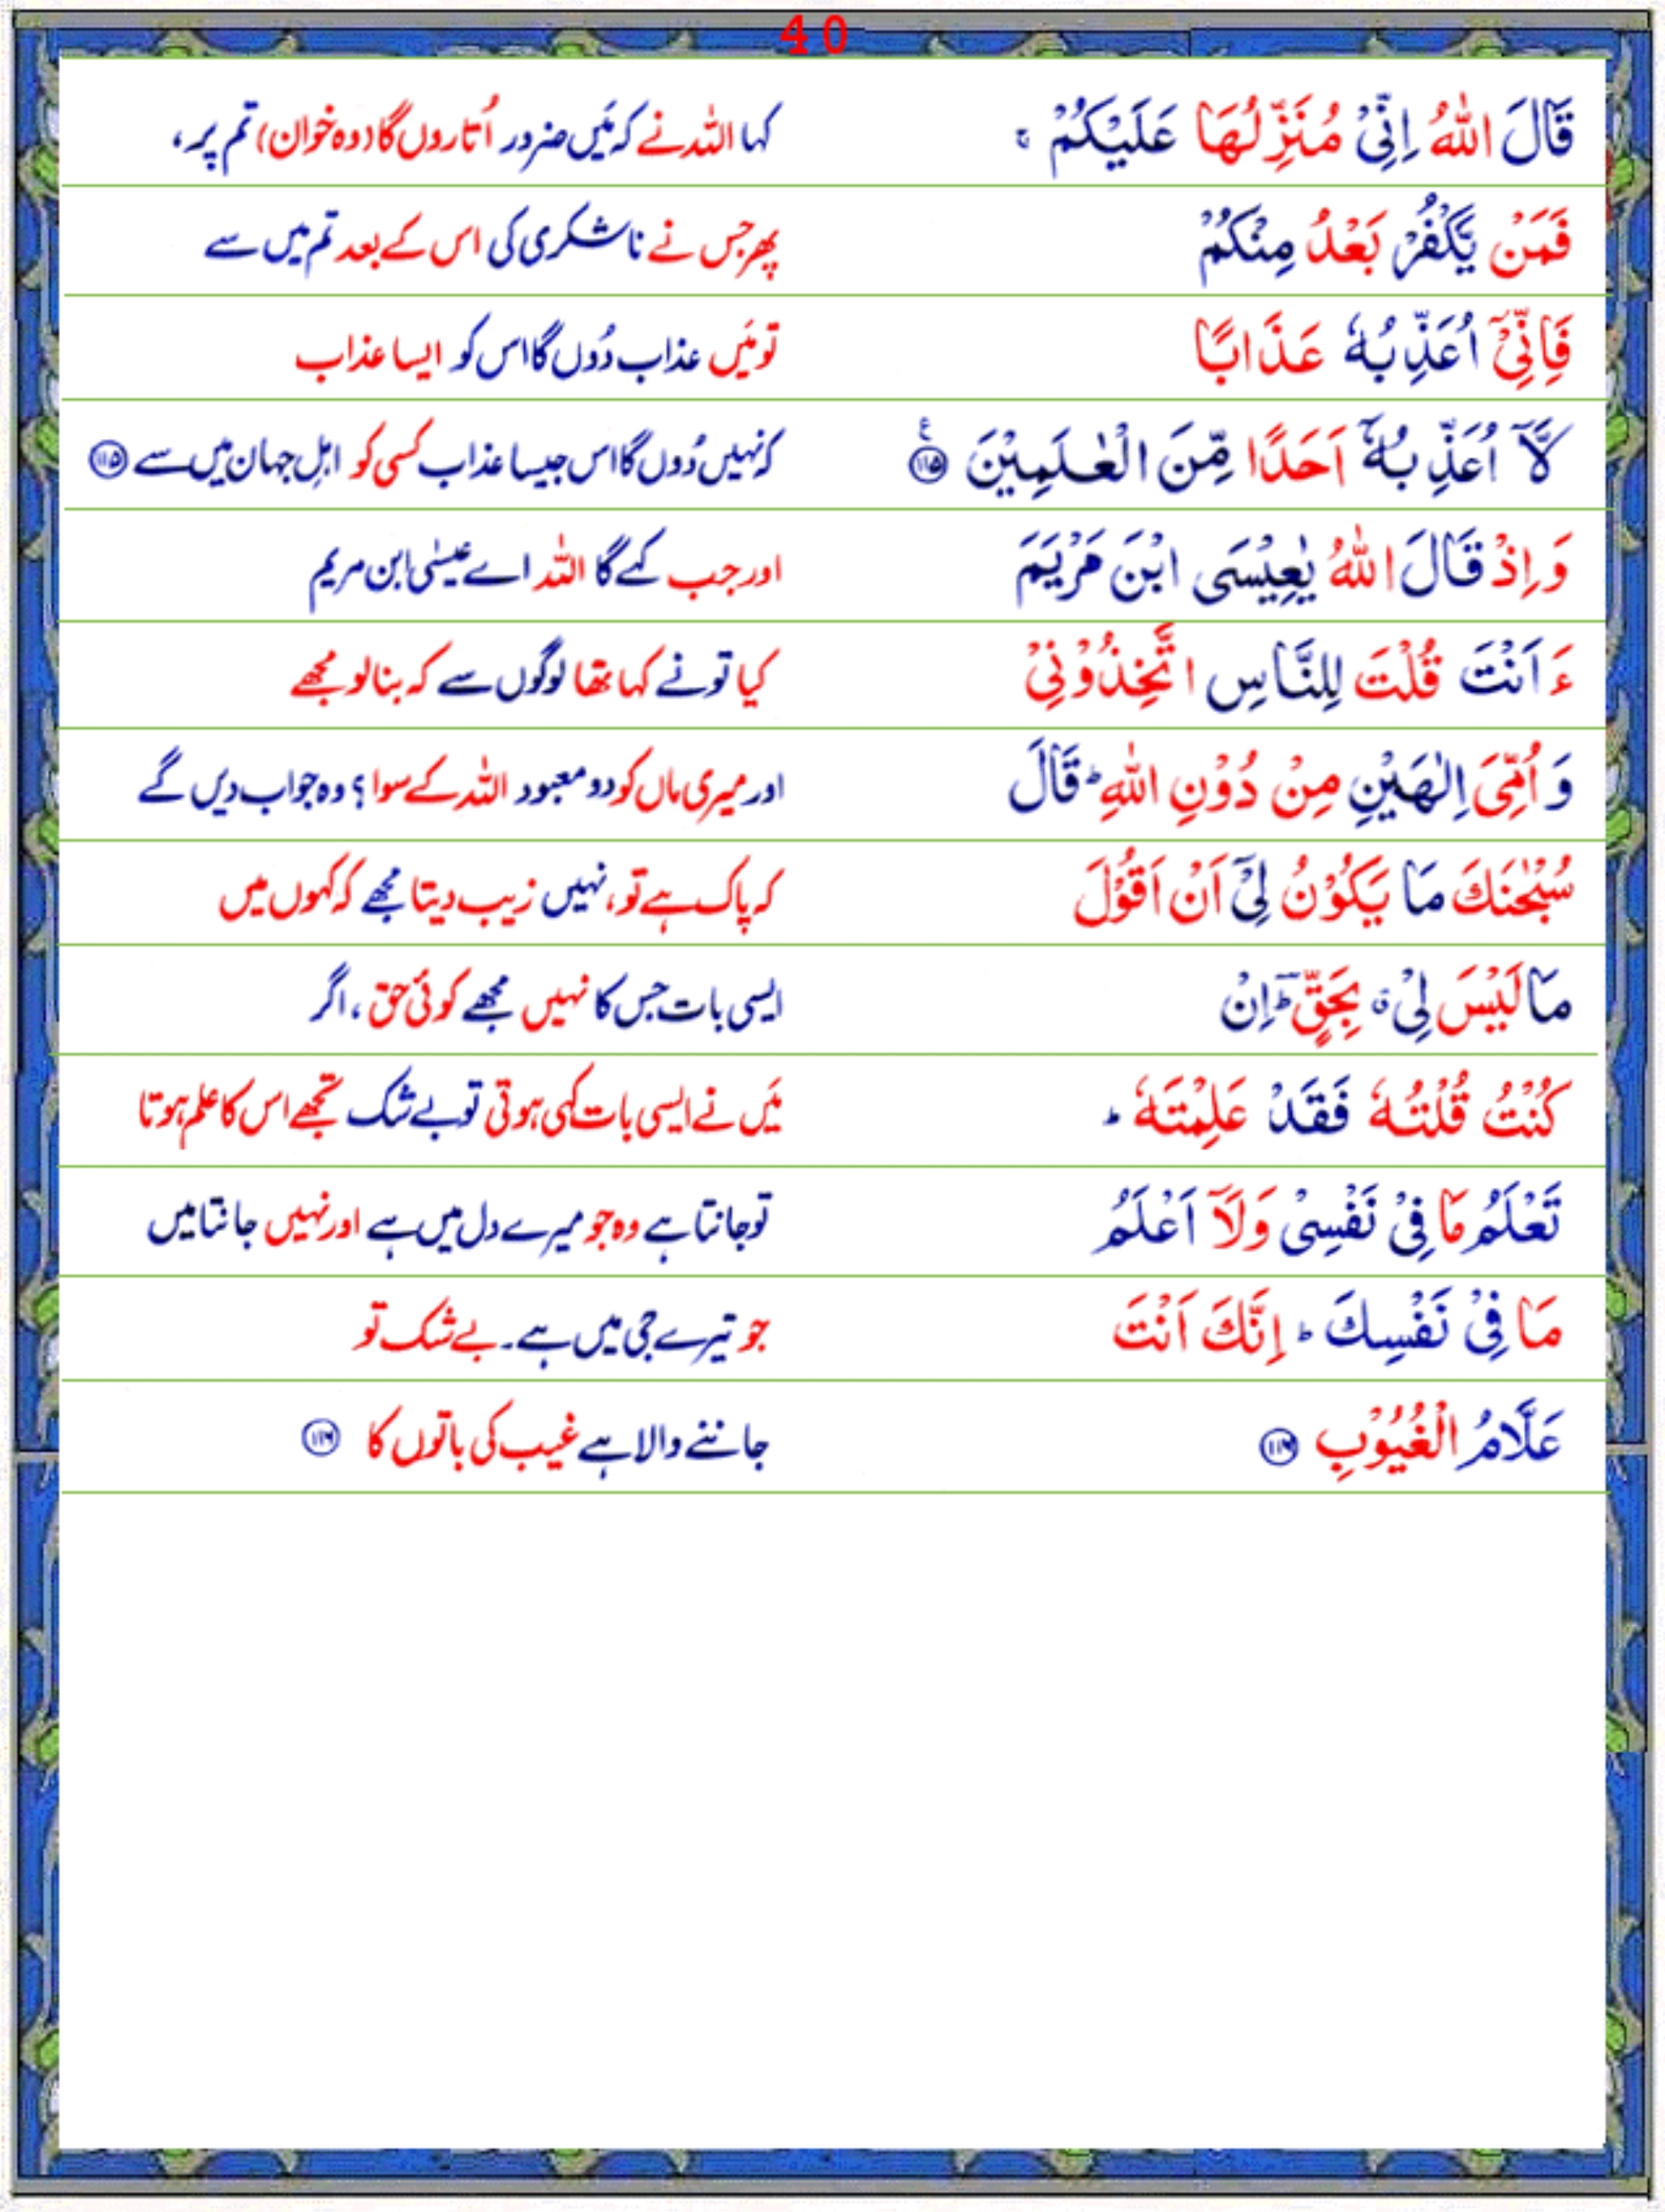 40
قَالَ اللّٰهُ اِنِّیْ مُنَزِّلُهَا عَلَیْكُمْ ۚ کہا اللہ نے کہ مَیں ضرور اُتاروں گا (وہ خوان) تم پر،
فَمَنْ یَّكْفُرْ بَعْدُ مِنْكُمْ پھر جس نے ناشکری کی اس کے بعد تم میں سے
فَاِنِّیْۤ اُعَذِّبُهٗ عَذَابًا تو مَیں عذاب دُوں گا اس کو ایسا عذاب
لَّاۤ اُعَذِّبُهٗۤ اَحَدًا مِّنَ الْعٰلَمِیْنَ ﴿۱۱۵﴾ ع کہ نہیں دُوں گا اس جیسا عذاب کسی کو اہلِ جہان میں سے ﴿۱۱۵﴾
وَ اِذْ قَالَ اللّٰهُ یٰعِیْسَی ابْنَ مَرْیَمَ اور جب کہے گا اللہ اے عیسٰی ابن مریم
ءَاَنْتَ قُلْتَ لِلنَّاسِ اتَّخِذُوْنِیْ کیا تو نے کہا تھا لوگوں سے کہ بنا لو مجھے
وَ اُمِّیَ اِلٰهَیْنِ مِنْ دُوْنِ اللّٰهِ ؕ قَالَ اور میری ماں کو دو معبود اللہ کے سوا ؟ وہ جواب دیں گے
سُبْحٰنَكَ مَا یَكُوْنُ لِیْۤ اَنْ اَقُوْلَ کہ پاک ہے تو، نہیں زیب دیتا مجھے کہ کہوں میں
مَا لَیْسَ لِیْ ۗ بِحَقٍّ ؕ اِنْ ایسی بات جس کا نہیں مجھے کوئی حق ، اگر
كُنْتُ قُلْتُهٗ فَقَدْ عَلِمْتَهٗ ؕ مَیں نے ایسی بات کہی ہوتی تو بے شک تجھے اس کا علم ہوتا
تَعْلَمُ مَا فِیْ نَفْسِیْ وَلَاۤ اَعْلَمُ تو جانتا ہے وہ جو میرے دل میں ہے اور نہیں جانتا میں
مَا فِیْ نَفْسِكَ ؕ اِنَّكَ اَنْتَ جو تیرے جی میں ہے۔ بے شک تو
عَلَّامُ الْغُیُوْبِ ﴿۱۱۶﴾ جاننے والا ہے غیب کی باتوں کا ﴿۱۱۶﴾